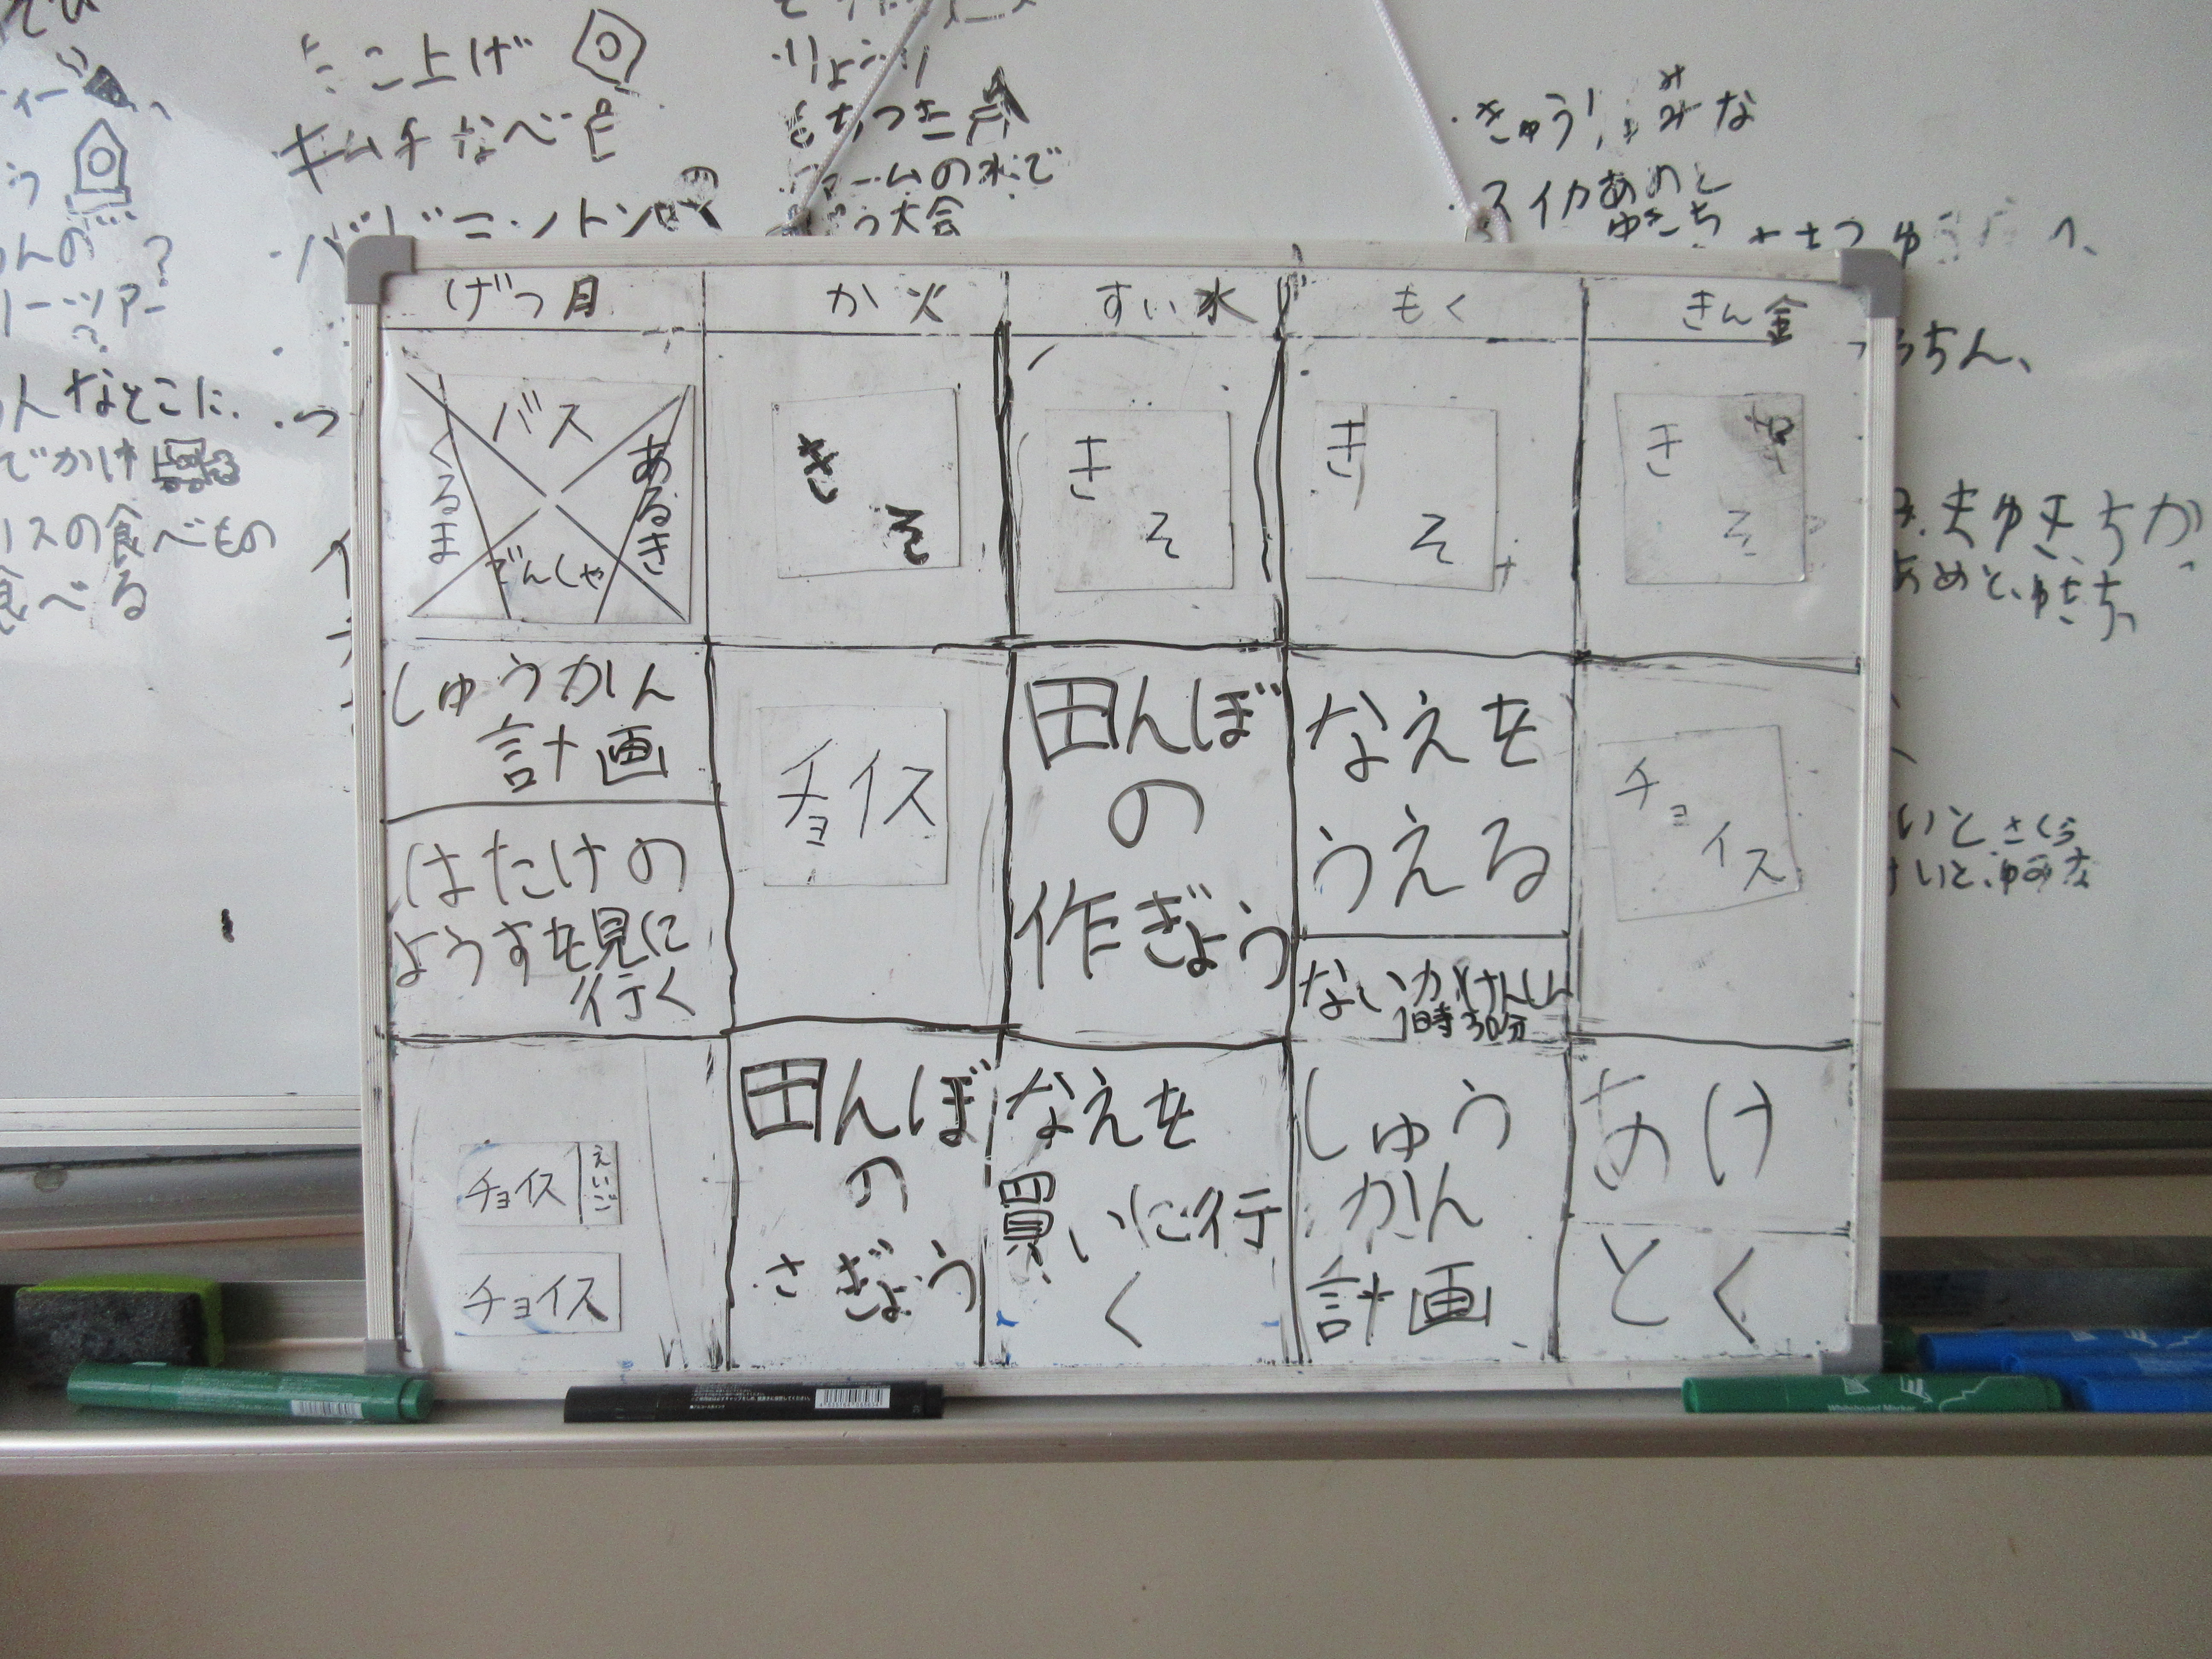 こ上げ
キムチなべ
バドミントン
りょうり
もちつき
ームの水で
う大会
スイカあめと
ゆきち
ー
う
んの
?
リーツアー
?
んなとこに
でかけ
リスの食べもの
食べる
うちん、
ゆきちが
あめと、ゆきち、
いとさくら
けいと、ゆみな
げつ月
か火
すい水
もく
きん金
バス
くるま
あるき
でんしゃ
き
そ
き
そ
き
そ
き
そ
しゅうかん
計画
はたけの
ようすを見に
行く
チョイス
田んぼ
の
作ぎょう
なえを
うえる
ないかけんしん
1時30分
チョ
イス
チョイス
えいご
チョイス
田んぼ
の
さぎょう
なえを
買いに行
く
しゅう
かん
計画
あけ
とく
Whiteboard Marker